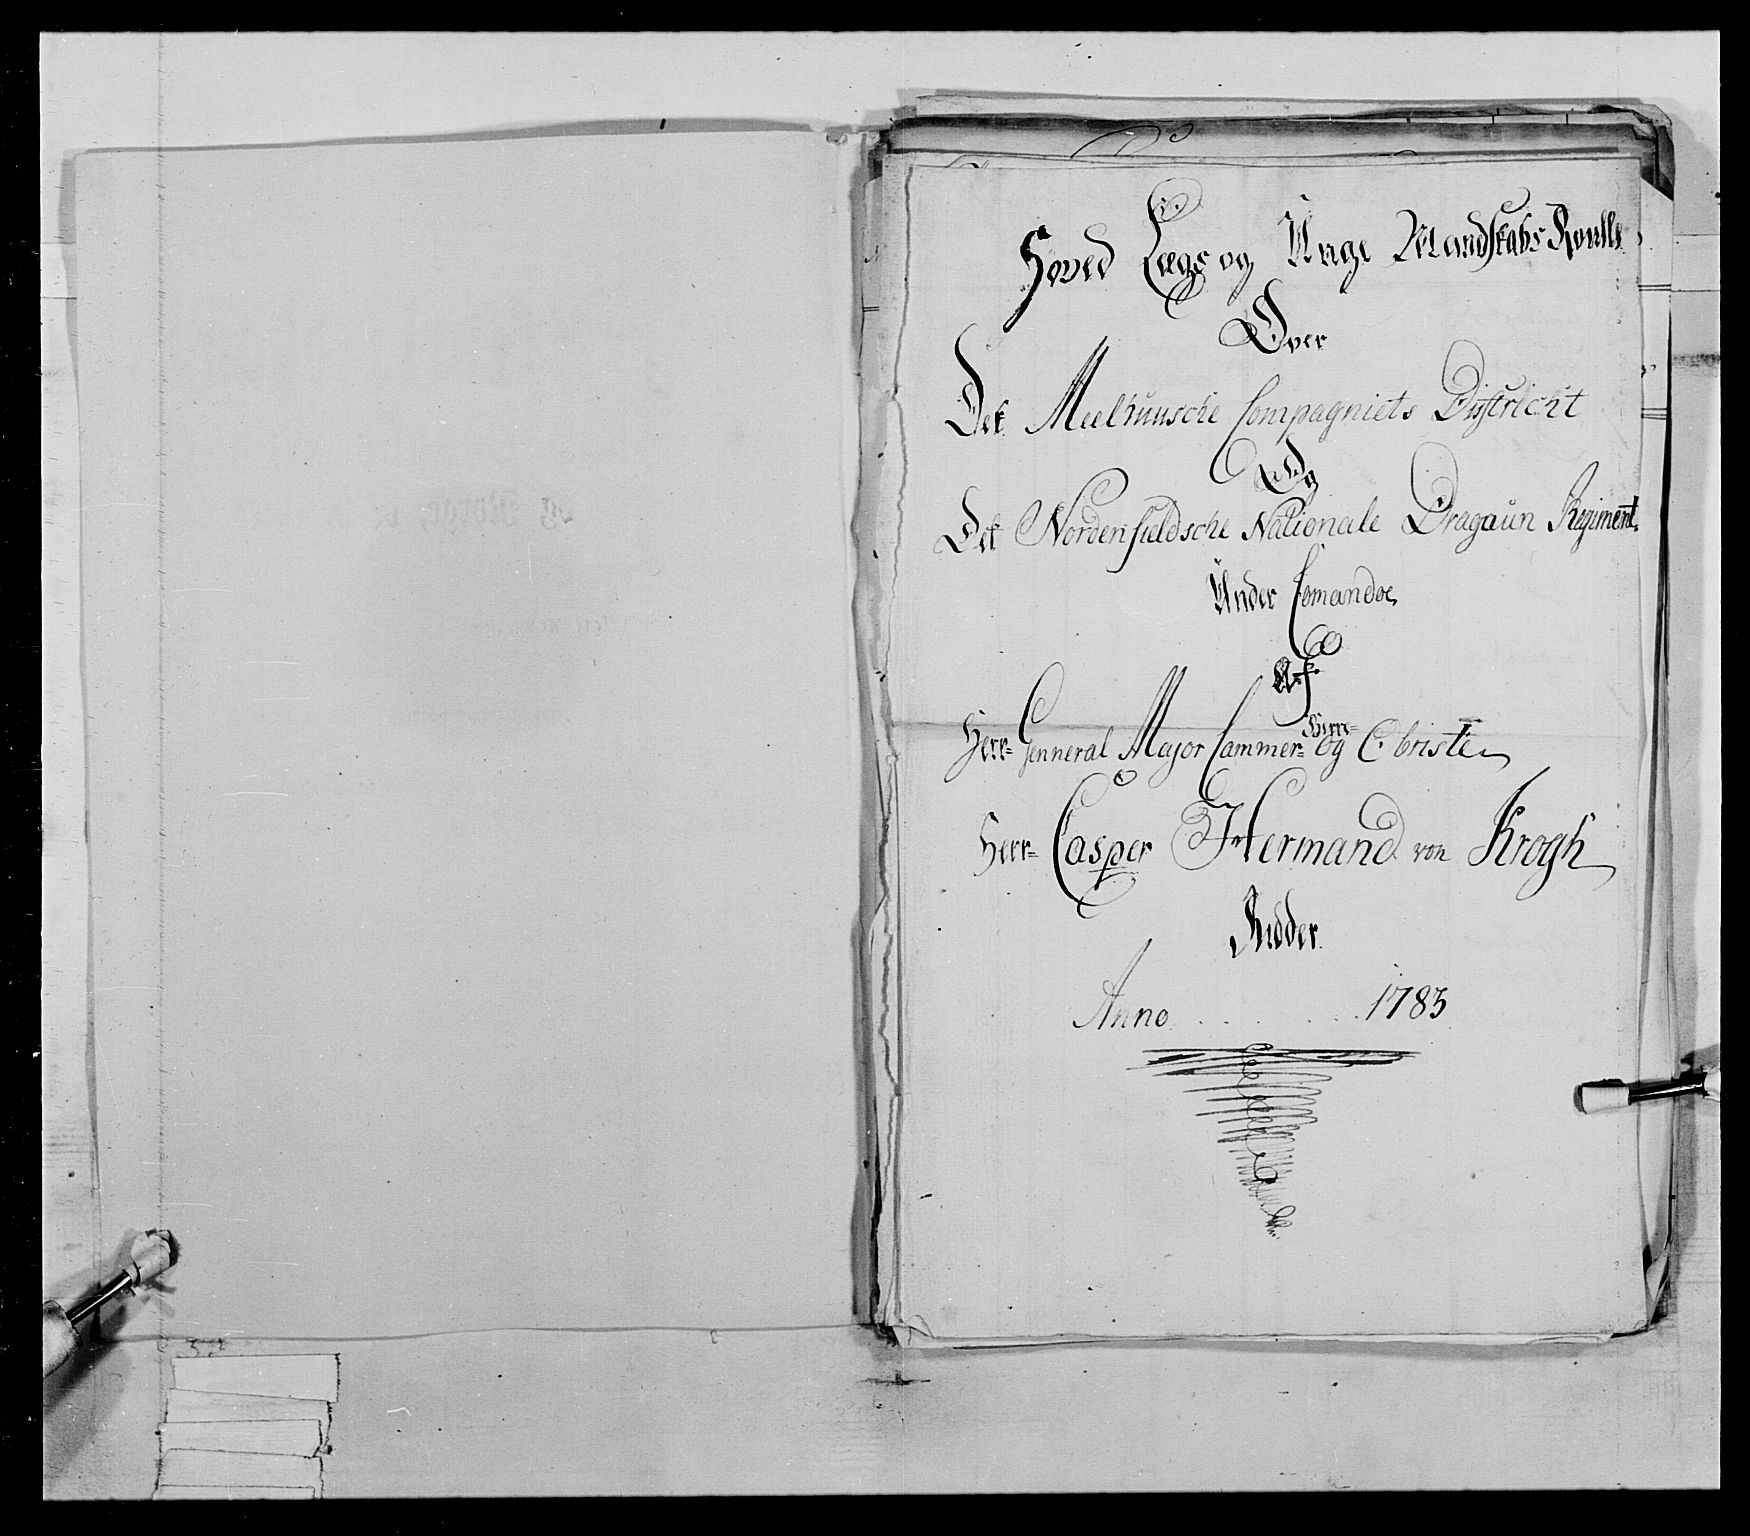 Hoved Lægs og Unge Mandskabs Roulle
Over
Det Meelhuusche Compagniets District
Og
Det Nordenfieldsche Nationale Dragoun Regiment.
Under Comandoe
Af
Herr= Genneral Major Cammer= Herr= og Obristen
Herr= Casper Hermand von Krogh
Ridder.
Anno . . . . . . 1783